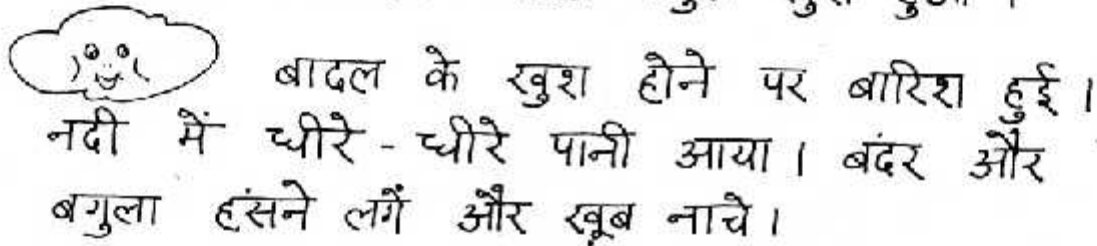 बादल के खुश होने पर बारिश हुई ।
नदी में धीरे - धीरे पानी आया । बंदर और
बगुला हंसने लगें और खूब नाचे ।